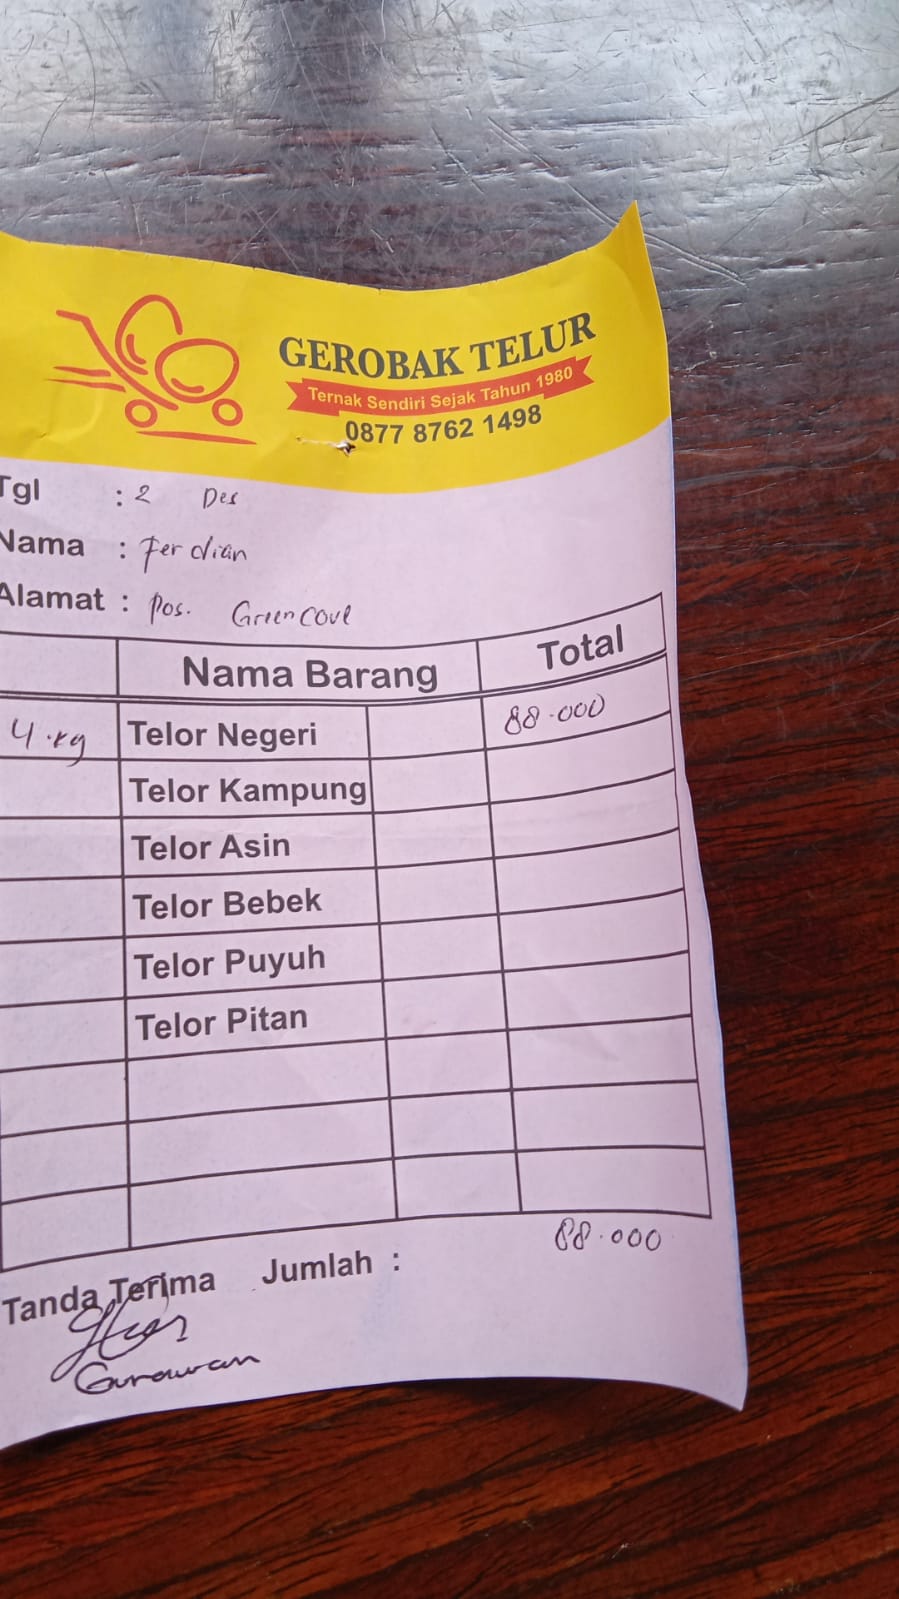 GEROBAK TELUR
Ternak Sendiri Sejak Tahun 1980
0877 8762 1498
Tgl : 2 Des
Nama : Ferdian
Alamat : Pos. Green cove
Nama Barang Total
4.kg Telor Negeri 88.000
Telor Kampung
Telor Asin
Telor Bebek
Telor Puyuh
Telor Pitan
Tanda Terima Jumlah : 88.000
Gunawan